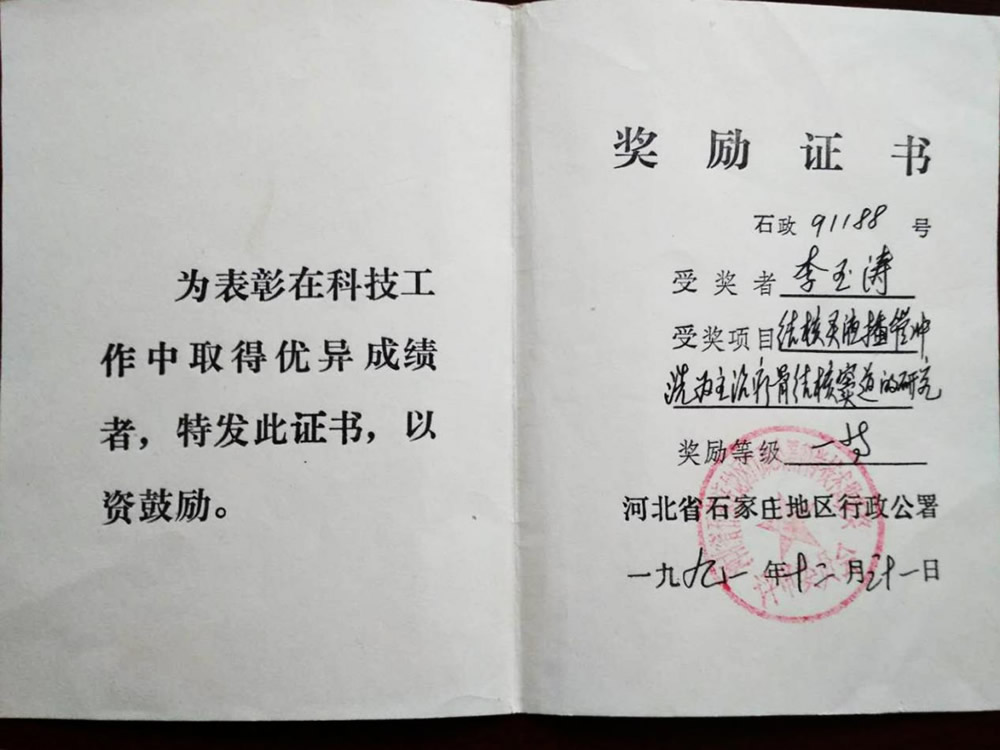 为表彰在科技工
作中取得优异成绩
者，特发此证书，以
资鼓励。
奖励证书
石政 91188 号
受奖者 李玉涛
受奖项目 结核灵液插管冲
洗为主治疗骨结核窦道的研究
奖励等级 一等
河北省石家庄地区行政公署
一九九一年十二月三十一日